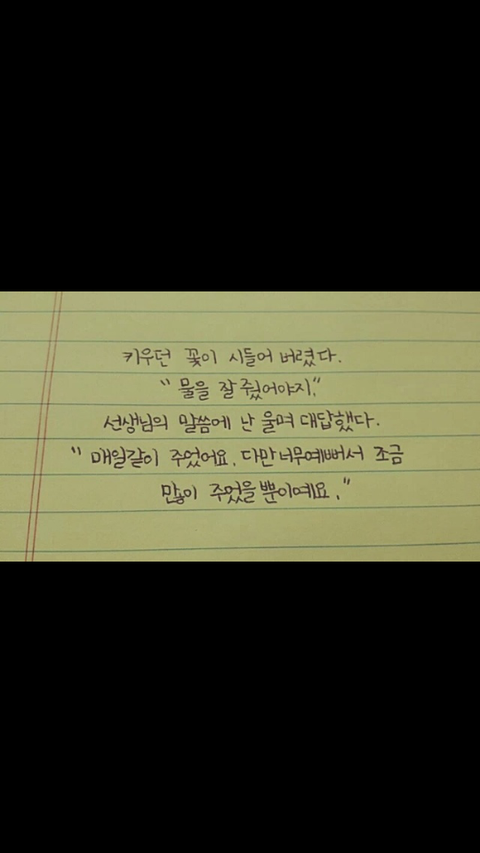 키우던 꽃이 시들어 버렸다.
"물을 잘 줬어야지."
선생님의 말씀에 난 울며 대답했다.
"매일같이 주었어요. 다만 너무예뻐서 조금
많이 주었을 뿐이예요."